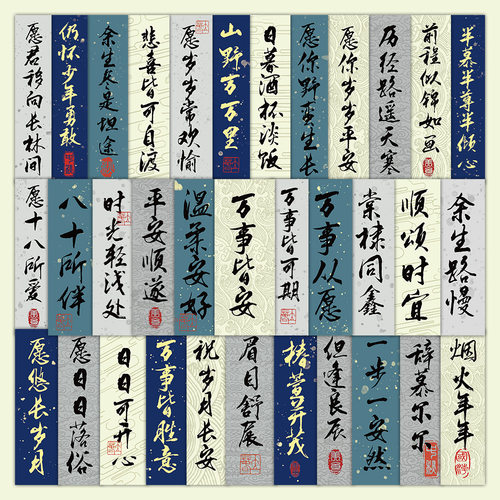 愿君移向长林间
仍怀少年勇敢
余生长是坦途
悲喜皆可自渡
愿岁岁常欢愉
山野万万里
日暮酒杯淡饭
愿你野蛮生长
愿你岁岁平安
历经路遥天寒
前程似锦如画
半慕半尊半倾心
愿十八所爱
八十所伴
时光轻浅处
平安顺遂
温柔安好
万事皆安
万事皆可期
万事从愿
棠棣同鑫
顺颂时宜
余生路慢
愿悠长岁月
愿日日落俗
日日可开心
万事皆胜意
祝岁月安
眉目舒展
椿萱并茂
但逢良辰
一步一安然
辞慕尔尔
烟火年年